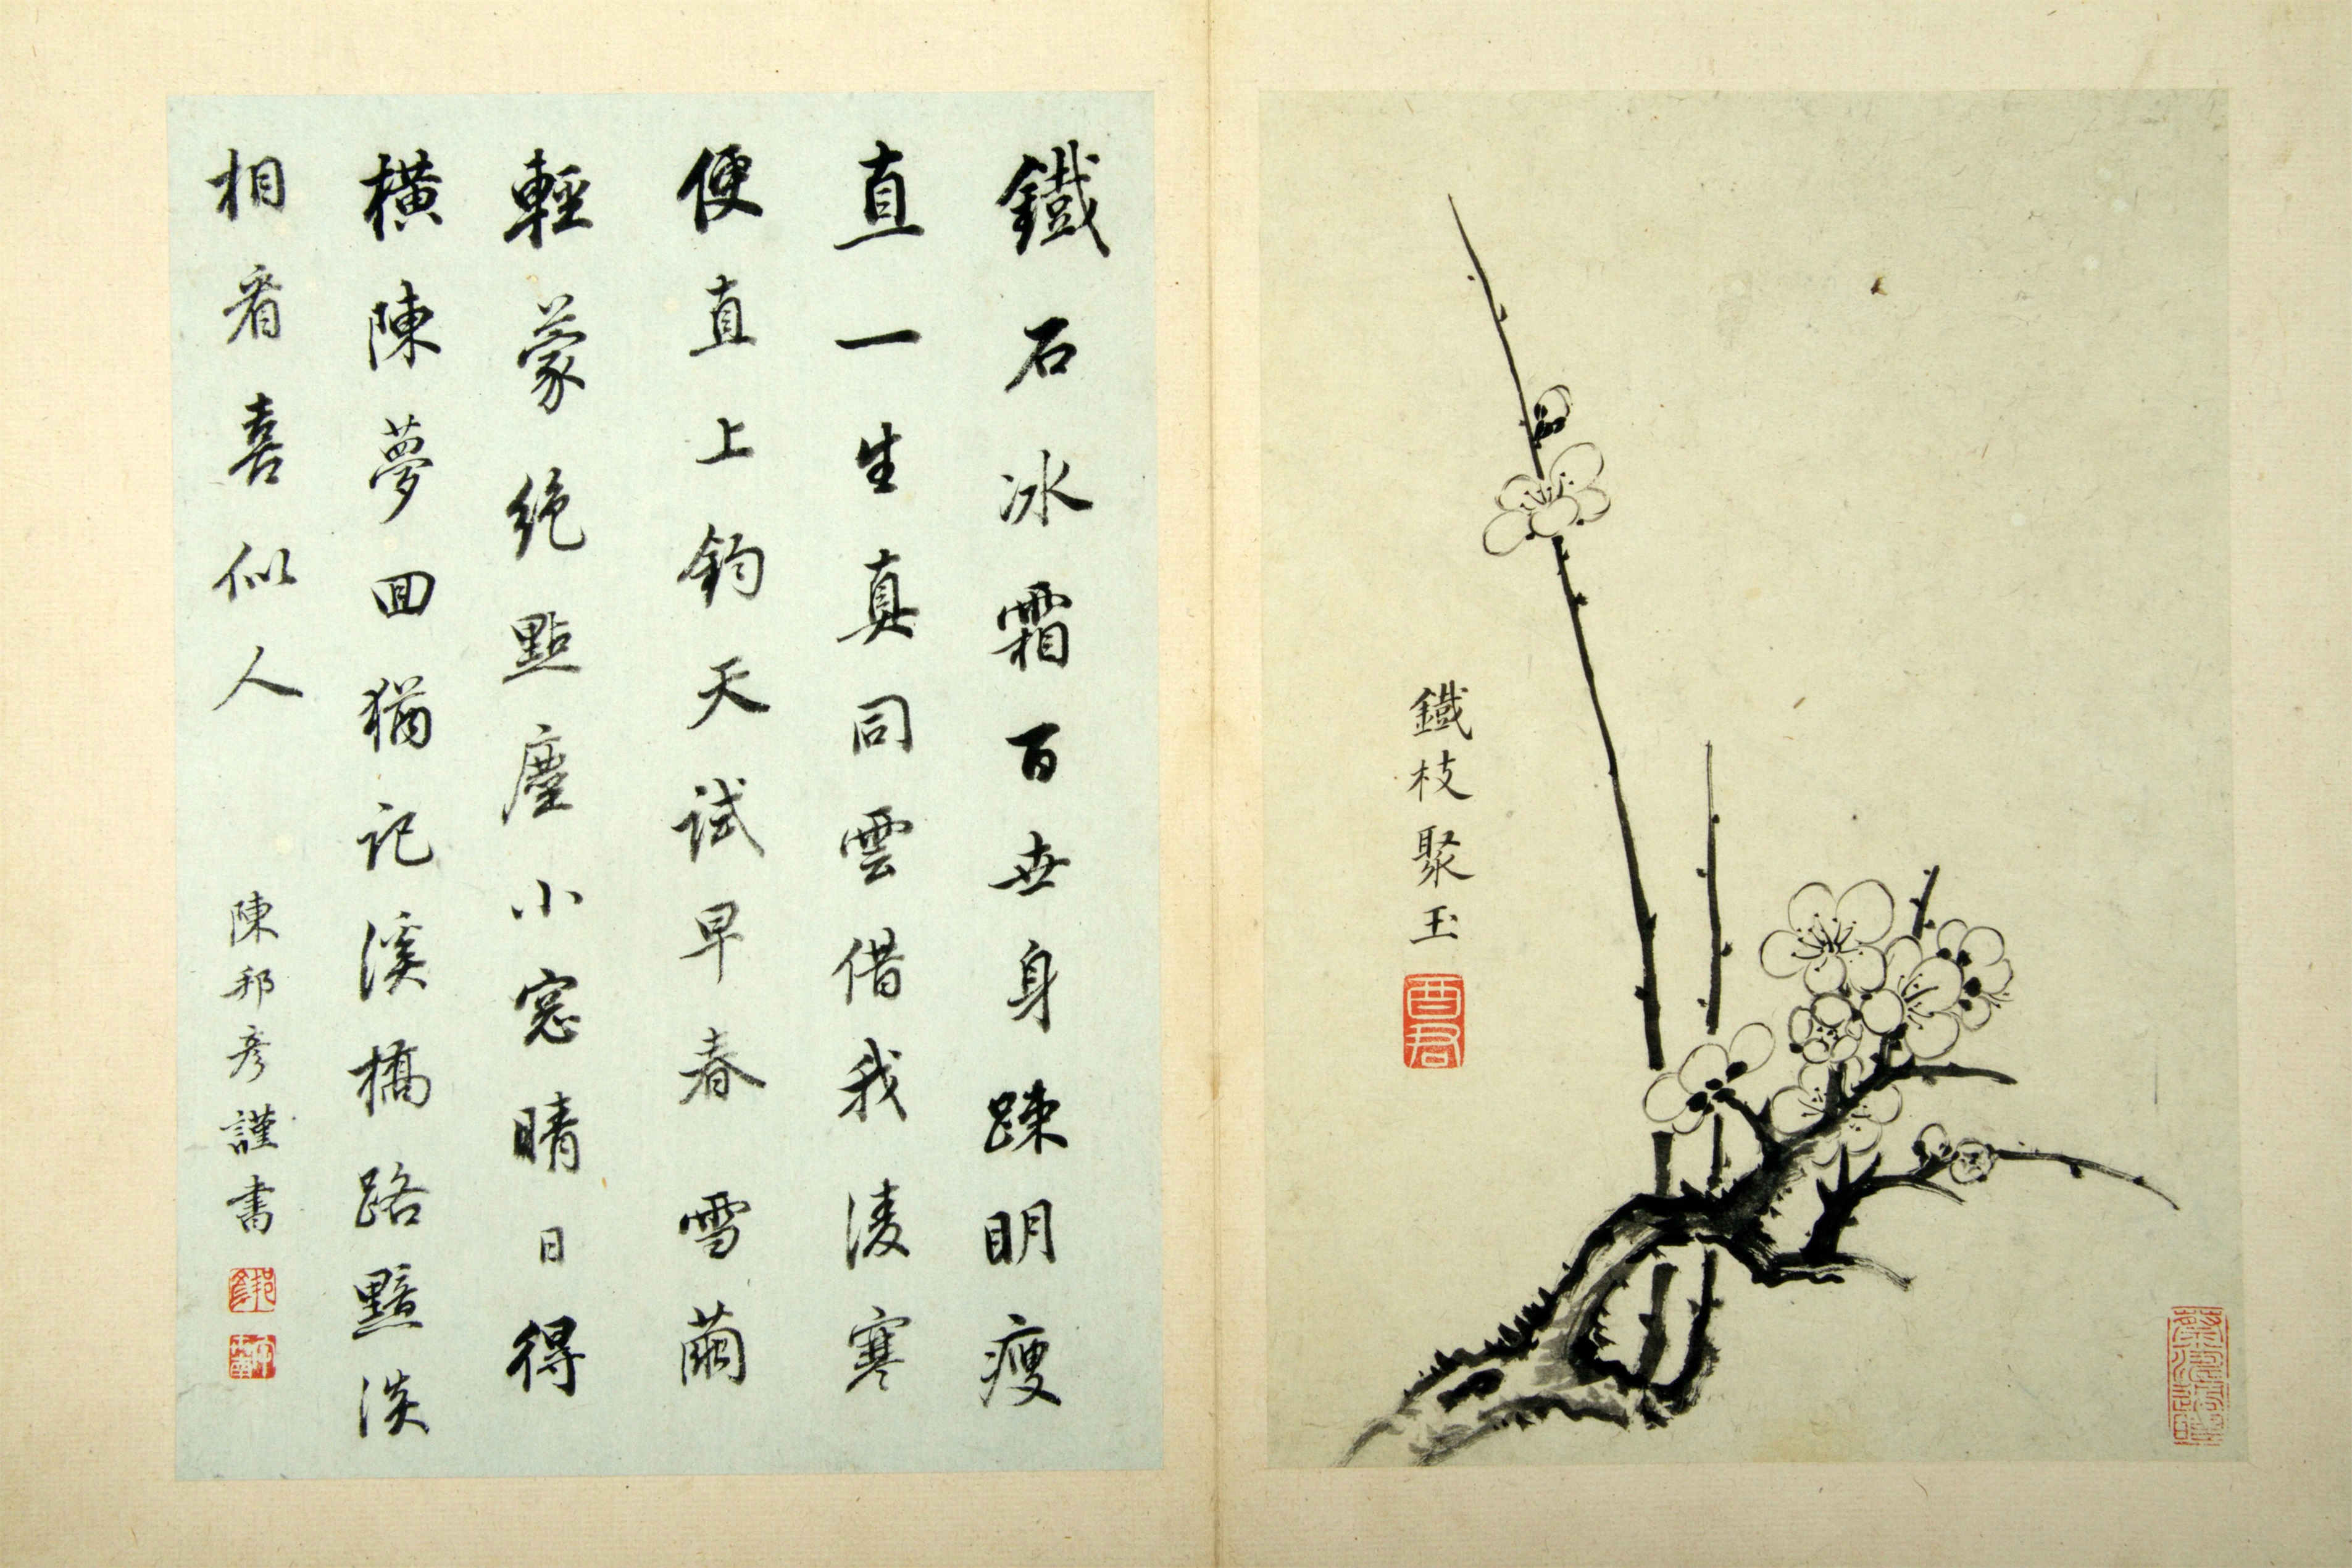 鐵枝聚玉
鐵石冰霜百世身踈明瘦
直一生真同雲借我淩寒
便直上鈞天試早春雪繭
輕蒙絶點塵小窓晴日得
橫陳夢回猶記溪橋路黯淡
相看喜似人
陳邦彥謹書